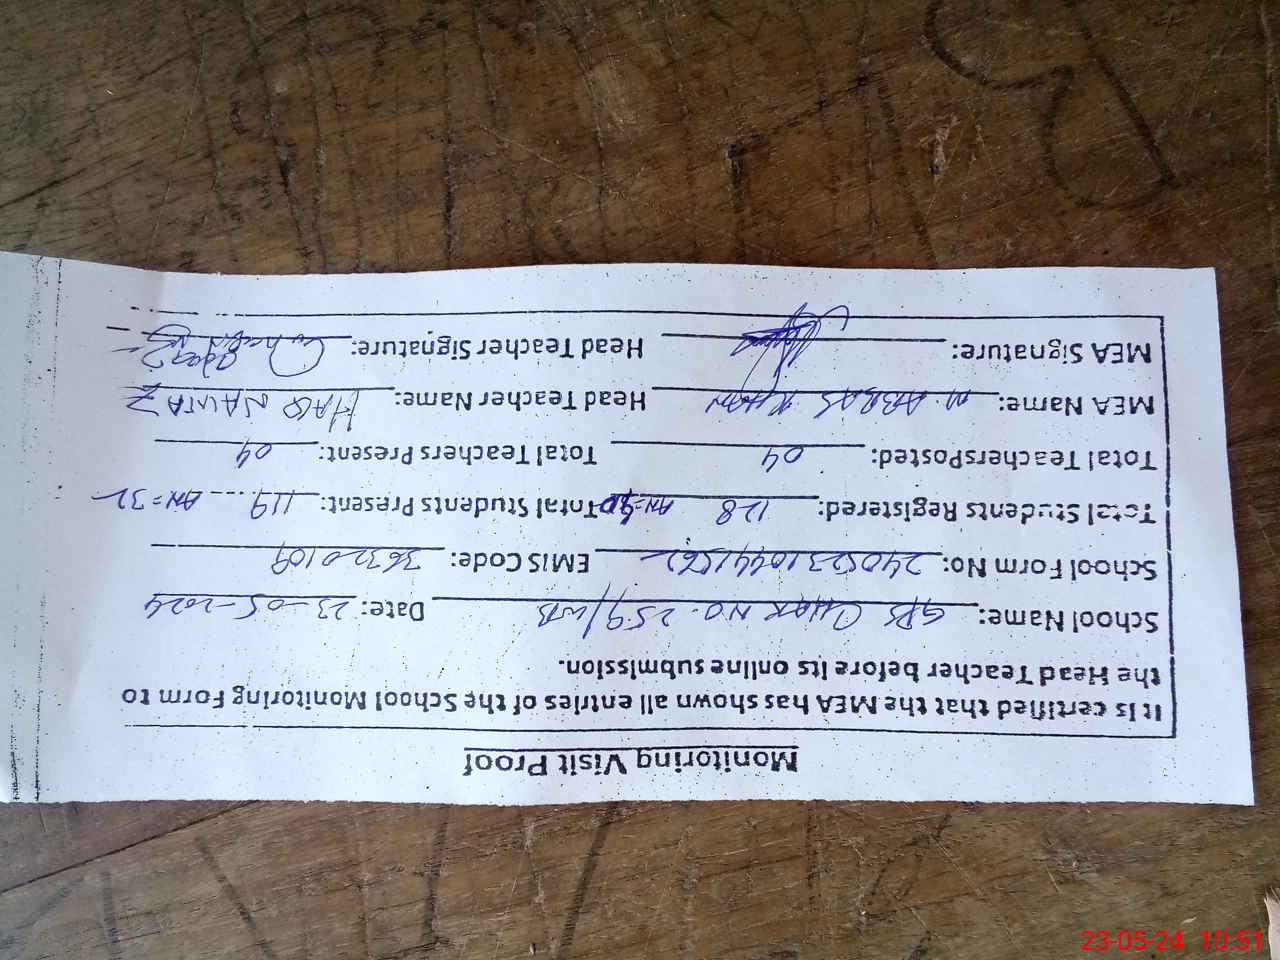 Monitoring Visit Proof
It is certified that the MEA has shown all entries of the School Monitoring Form to
the Head Teacher before its online submission.
School Name: GPS CHAK NO. 259/WB Date: 23-05-2024
School Form No: EMIS Code: 36320109
Total Students Registered: 128 Total Students Present: 119 AN=32
Total TeachersPosted: 04 Total Teachers Present: 04
MEA Name: M. ABBAS KHAN Head Teacher Name: HAQ NAWAZ
MEA Signature: Head Teacher Signature:
23-05-24 10:51